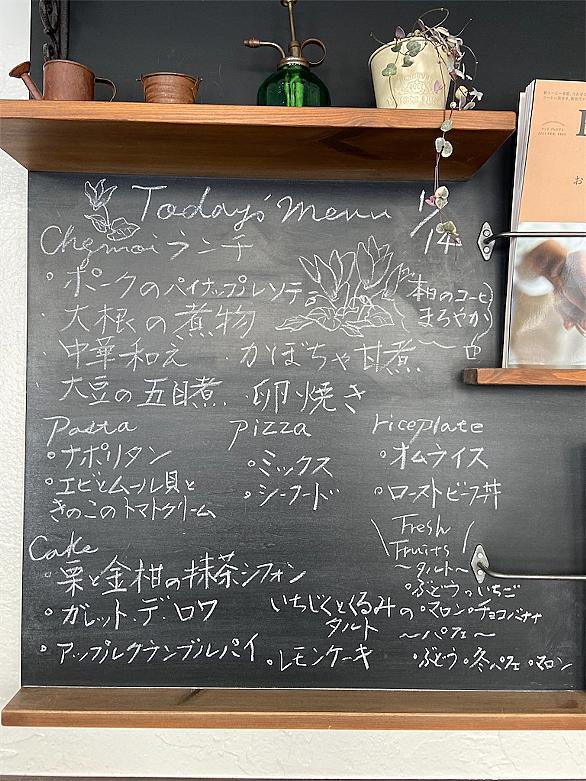 Today's Menu 1/14
Chemoiランチ
・ポークのパイナップルソテー
本日のコーヒー
まろやか
大根の煮物
・中華和え ・かぼちゃ甘煮
・大豆の五目煮 ・卵焼き
Pasta
・ナポリタン
・エビとムール貝と
きのこのトマトクリーム
pizza
・ミックス
・シーフード
riceplate
・オムライス
・ローストビーフ丼
Cake
・栗と金柑の抹茶シフォン
・ガレット・デ・ロワ
いちじくとくるみの
タルト
・アップルクランブルパイ
・レモンケーキ
Fresh
Fruits
～タルト～
・ぶどう・いちご
・マロン・チョコバナナ
～パフェ～
・ぶどう・冬パフェ・マロン